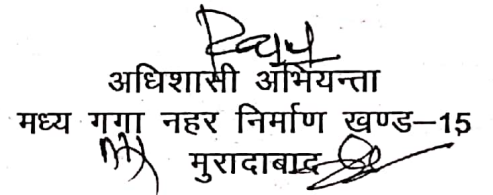 अधिशासी अभियन्ता
मध्य गगा नहर निर्माण खण्ड–15
मुरादाबाद